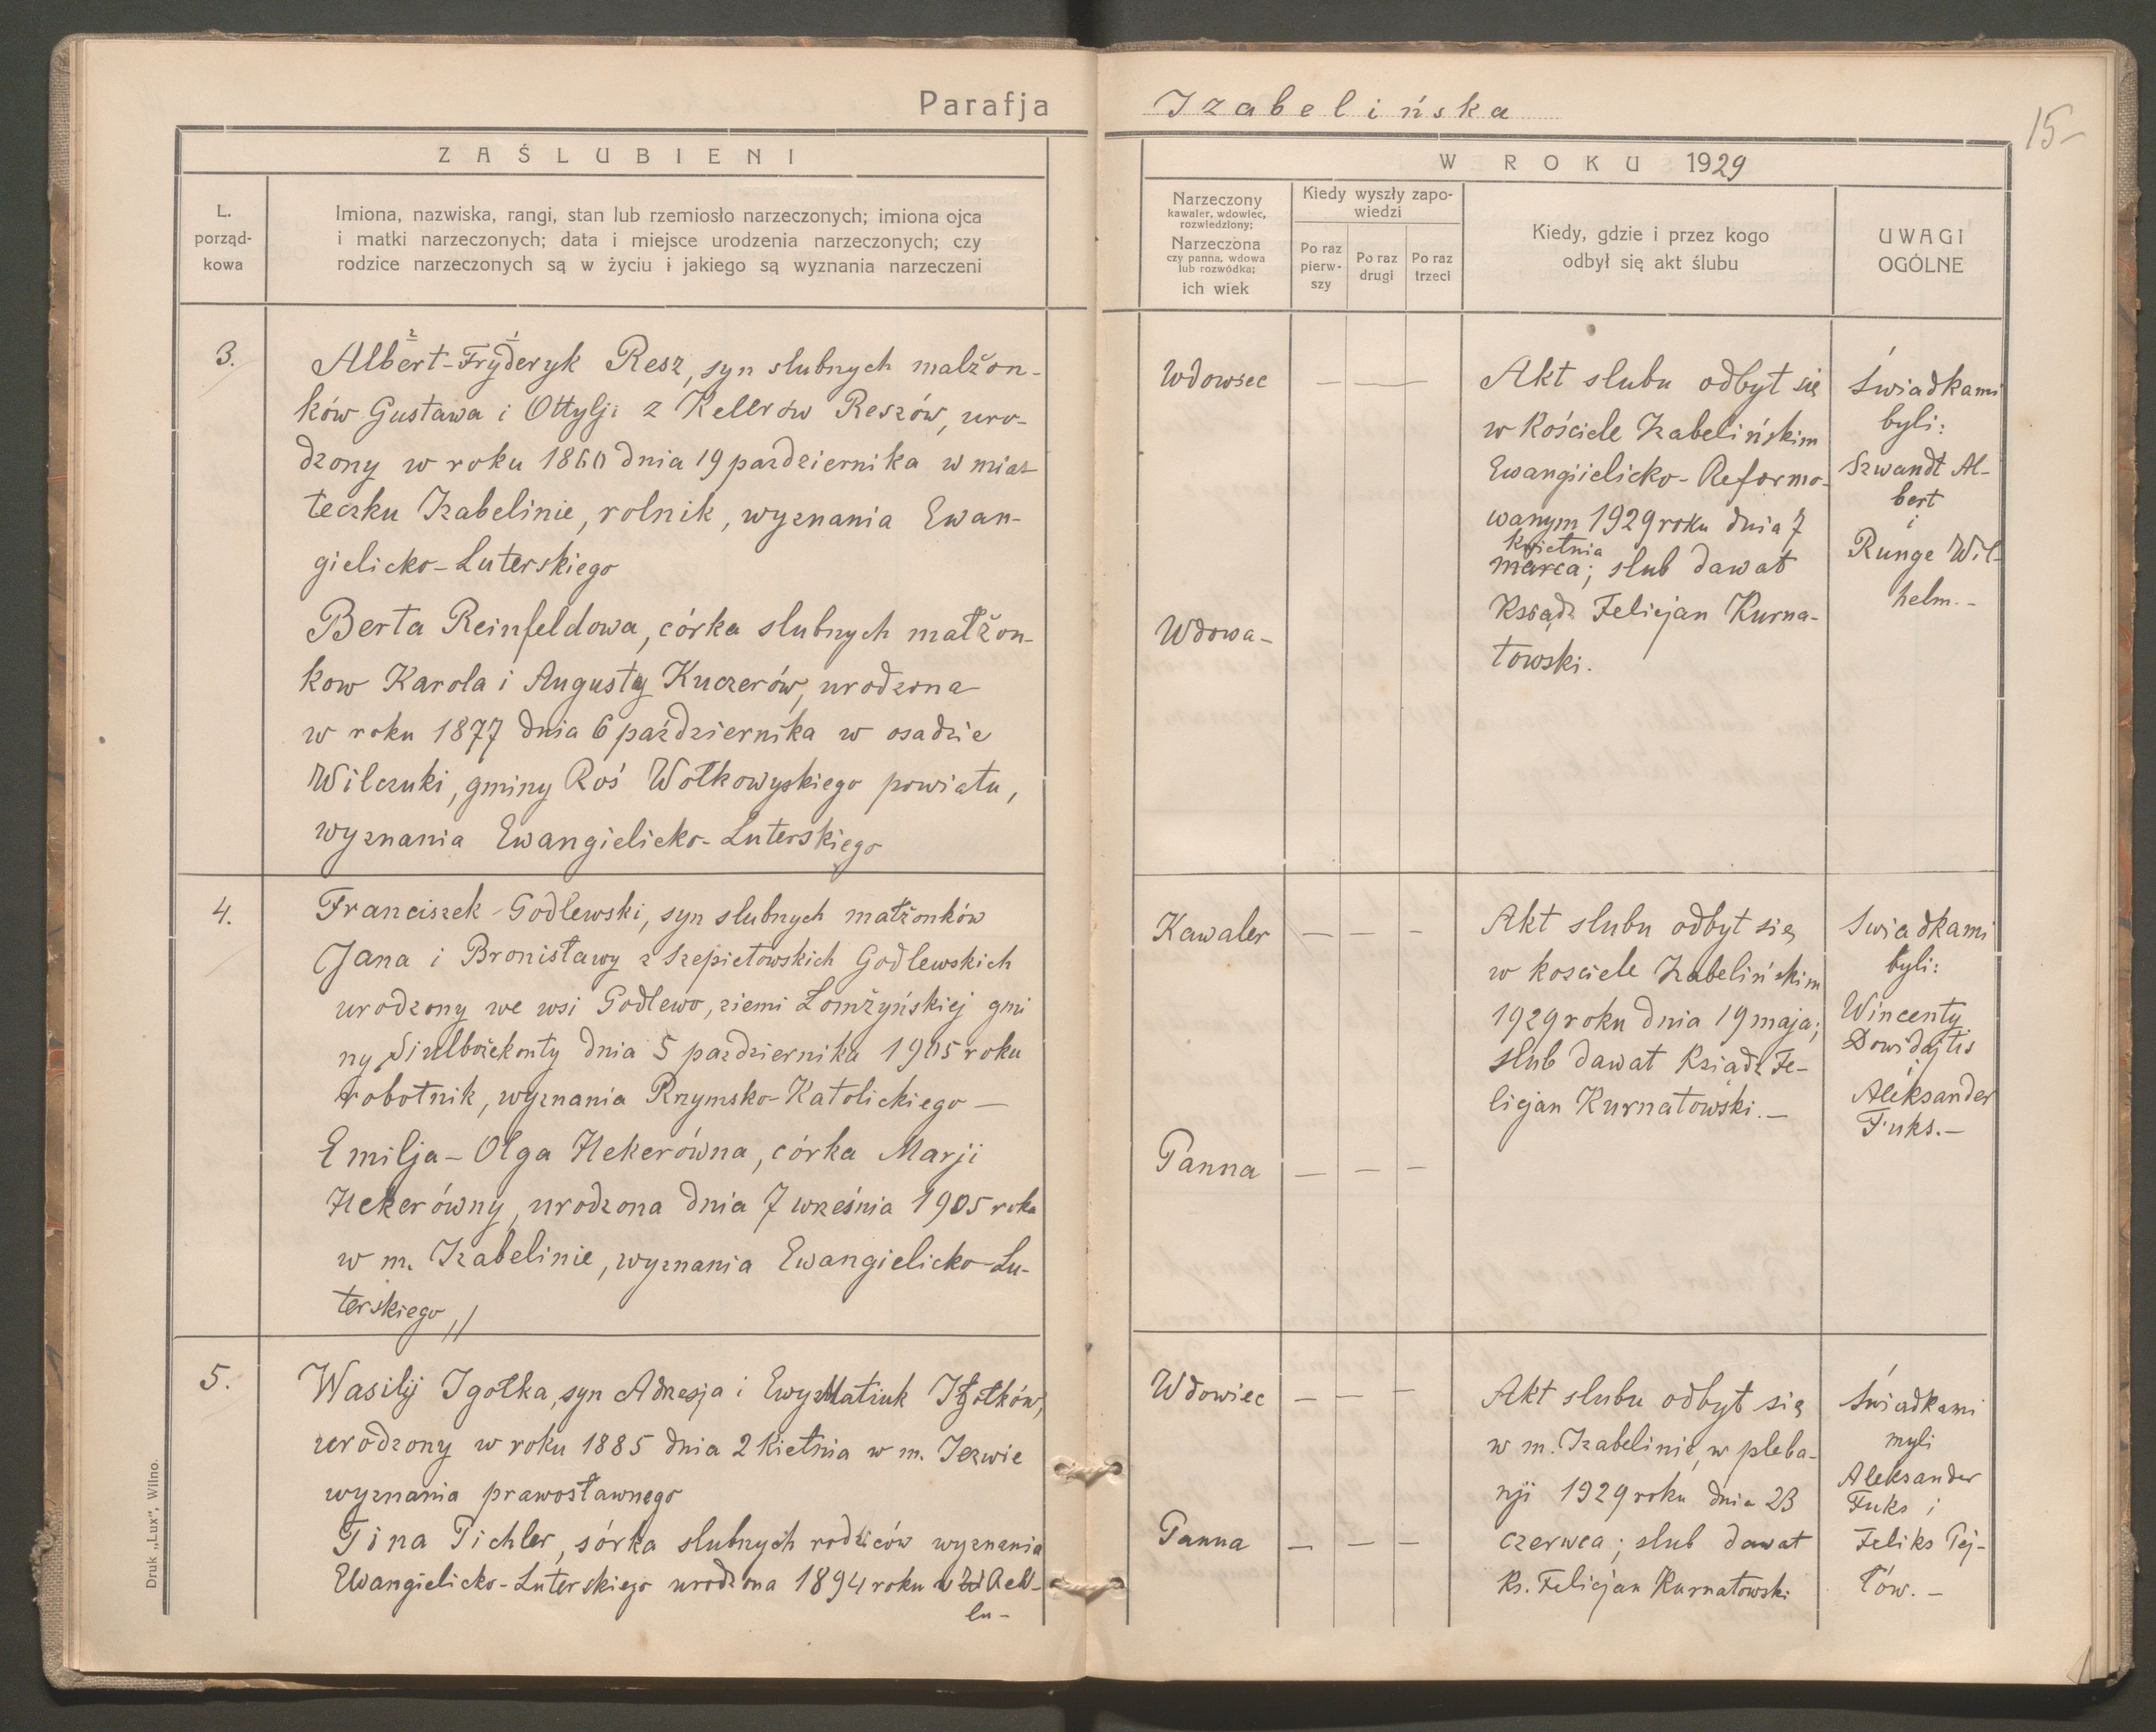 Parafja
Izabelińska
15-
ZAŚLUBIENI
W ROKU 1929
L.
porząd-
kowa
Imiona, nazwiska, rangi, stan lub rzemiosło narzeczonych; imiona ojca
i matki narzeczonych; data i miejsce urodzenia narzeczonych; czy
rodzice narzeczonych są w życiu i jakiego są wyznania narzeczeni
Narzeczony
kawaler, wdowiec,
rozwiedziony;
Narzeczona
czy panna, wdowa
lub rozwódka;
ich wiek
Kiedy wyszły zapo-
wiedzi
Po raz
pierw-
szy
Po raz
drugi
Po raz
trzeci
Kiedy, gdzie i przez kogo
odbył się akt ślubu
UWAGI
OGÓLNE
3.
2 1
Albert-Fryderyk Resz, syn slubnych malżon-
ków Gustawa i Ottylji z Kellrów Reszów, uro-
dzony w roku 1860 dnia 19 pazdziernika w mias-
teczku Izabelinie, rolnik, wyznania Ewan-
gielicko-Luterskiego
Berta Reinfeldowa, córka slubnych małżon-
kow Karola i Augusty Kuczerów, urodzona
w roku 1877 dnia 6 października w osadzie
Wilczuki, gminy Roś Wołkowyskiego powiatu,
wyznania Ewangielicko-Luterskiego
Wdowiec
Wdowa-
Akt slubu odbył się
w Kościele Izabelińskim
Ewangiielicko-Reformo-
wanym 1929 roku dnia 7
kwietnia
marca; slub dawał
Ksiądz Felicjan Kurna-
towski.
Świadkami
byli:
Szwandt Al-
bert
i
Runge Wil-
helm.-
4.
Franciszek Godlewski, syn slubnych małżonków
Jana i Bronisławy z Szepietowskich Godlewskich
urodzony we wsi Godlewo, ziemi Łomżyńskiej gmi
ny dnia 5 pazdziernika 1905 roku
robotnik, wyznania Rzymsko-Katolickiego —
Emilja-Olga Hekerówna, córka Marji
Hekerówny, urodzona dnia 7 września 1905 roku
w m. Izabelinie, wyznania Ewangielicko-Lu-
terskiego,//
Kawaler
Panna
Akt slubu odbył się
w kosciele Izabelińskim
1929 roku dnia 19 maja;
slub dawał Ksiądz Fe-
licjan Kurnatowski.—
Swiadkami
byli:
Wincenty
Dowidajtis
i
Aleksander
Fuks.—
5.
Wasilij Igołka, syn i Ewy z Matiuk Igołków,
urodzony w roku 1885 dnia 2 kietnia w m.
wyznania prawosławnego
Tina Pichler, sórka slubnych rodziców wyznania
Ewangielicko-Luterskiego urodzona 1894 roku w
Wdowiec
Panna
Akt slubu odbył się
w m. Izabelinie, w pleba-
nji 1929 roku dnia 23
czerwca; slub dawał
Ks. Felicjan Kurnatowski
Świadkami
myli
Aleksander
Fuks i
Feliks Pej-
łów.—
Druk „Lux", Wilno.